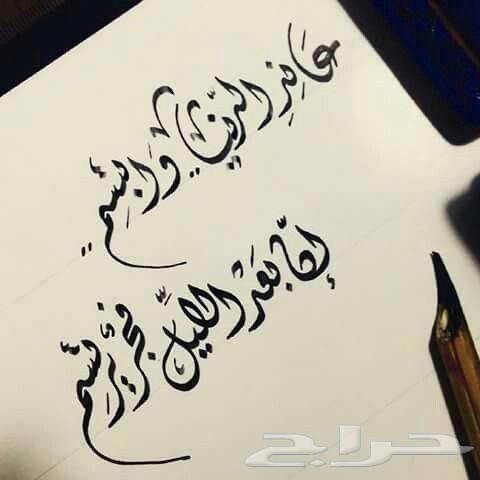 عَانِدِ الدُّنْيَا وَابْتَسِمِ
إنَّ بَعْدَ اللَّيْلِ فَجْرٌ يَرْتَسِمِ
حراج